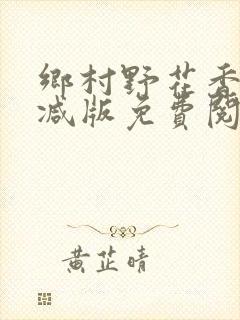 鄉村野花香
减版免費閱
黄芷晴